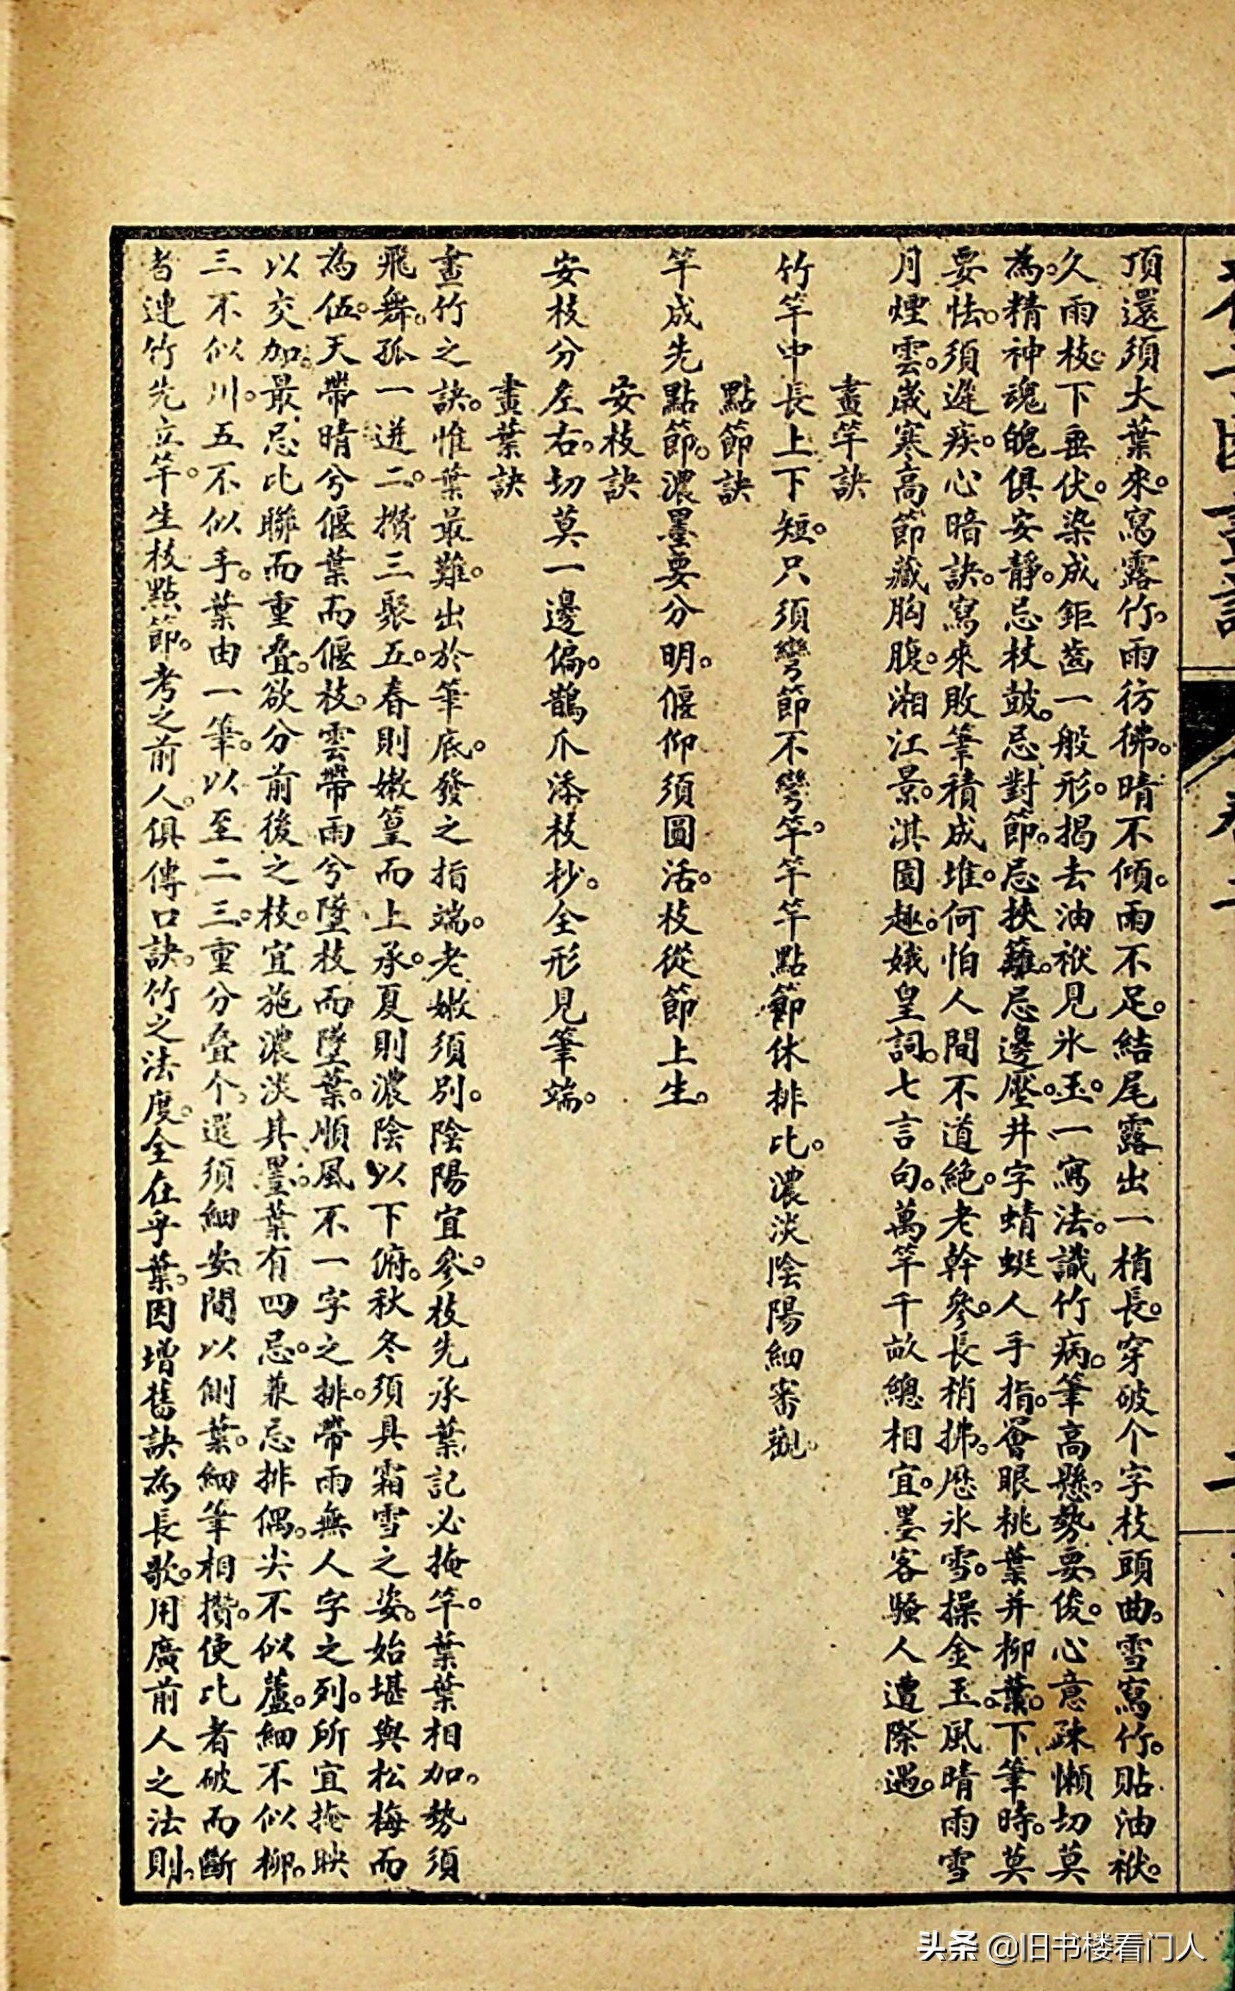 頂還須大葉來。寫露竹。雨彷彿。晴不傾。雨不足。結尾露出一梢長。穿破个字枝頭曲。雪寫竹。貼油袱。
久雨枝。下垂伏。染成鉅齒一般形。揭去油袱見氷玉。一寫法。識竹病。筆高懸。勢要俊。心意疎懶切莫
為。精神魂魄俱安靜。忌杖鼓。忌對節。忌挾籬。忌邊壓。井字蜻蜓人手指。罾眼桃葉并柳葉。下筆時。莫
要怯。須遲疾。心暗訣。寫來敗筆積成堆。何怕人間不道絶。老幹參。長梢拂。歷氷雪。操金玉。風晴雨雪
月煙雲。歲寒高節藏胸腹。湘江景。淇園趣。娥皇詞。七言句。萬竿千畝總相宜。墨客騷人遭際遇。
畫竿訣
竹竿中長上下短。只須彎節不彎竿。竿竿點節休排比。濃淡陰陽細審觀。
點節訣
竿成先點節。濃墨要分明。偃仰須圓活。枝從節上生。
安枝訣
安枝分左右。切莫一邊偏。鵲爪添枝抄。全形見筆端。
畫葉訣
畫竹之訣。惟葉最難。出於筆底。發之指端。老嫩須別。陰陽宜參。枝先承葉。記必掩竿。葉葉相加。勢須
飛舞。孤一迸二。攢三聚五。春則嫩篁而上承。夏則濃陰以下俯。秋冬須具霜雪之姿。始堪與松梅而
為伍。天帶晴兮偃葉而偃枝。雲帶雨兮墜枝而墜葉。順風不一字之排。帶雨無人字之列。所宜掩映
以交加。最忌比聯而重叠。欲分前後之枝。宜施濃淡其墨。葉有四忌。兼忌排偶。尖不似蘆。細不似柳。
三不似川。五不似手。葉由一筆。以至二三。重分叠个。還須細安。間以側葉。細筆相攢。使比者破而斷
者連。竹先立竿。生枝點節。考之前人。俱傳口訣。竹之法度。全在乎葉。因增舊訣為長歌。用廣前人之法則。
卷二
二
头条 @旧书楼看门人